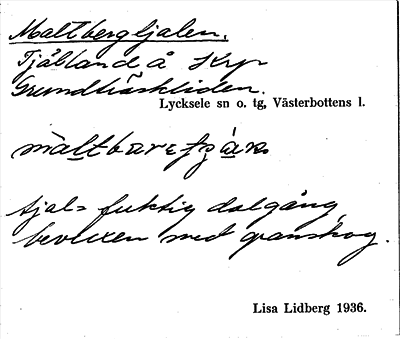 Maltbergljalen.
Tjålland å Krp
Grundträskliden.
Lycksele sn o. tg, Västerbottens l.
tjal = fuktig dalgång,
bevuxen med granskog.
Lisa Lidberg 1936.